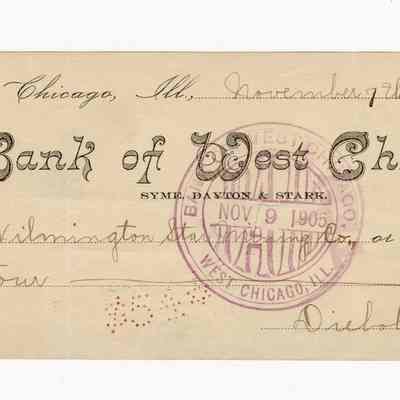 Chicago, Ill., November 9th
Bank of West Chi
SYME, DAYTON & STARK.
BANK OF WEST CHICAGO,
NOV 9 1905
PAID
WEST CHICAGO, ILL.
Wilmington Star Mining Co., or
Four
$54
Diebol